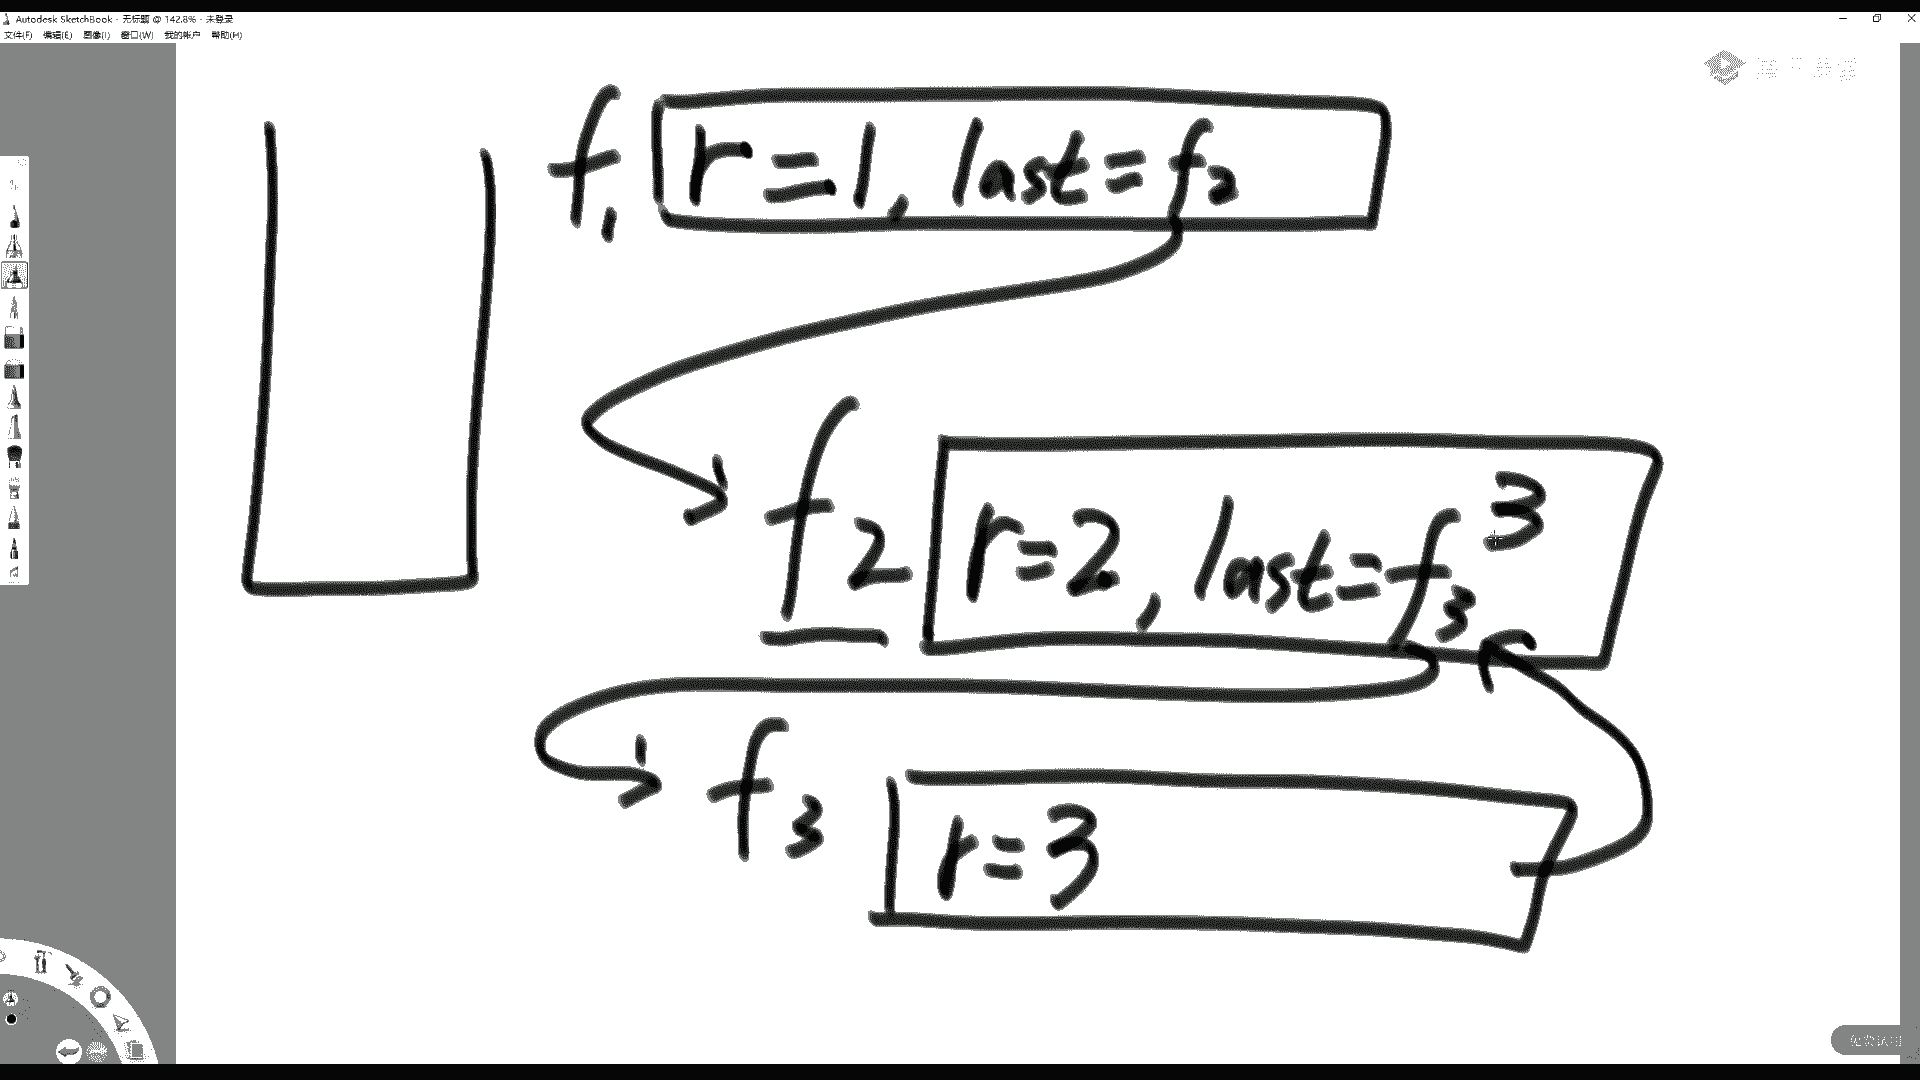 Autodesk SketchBook - 无标题 @ 142.8% - 未登录
文件(F) 编辑(E) 图像(I) 窗口(W) 我的帐户 帮助(H)
f1 r=1, last=f2
f2 r=2, last=f3 3
f3 r=3